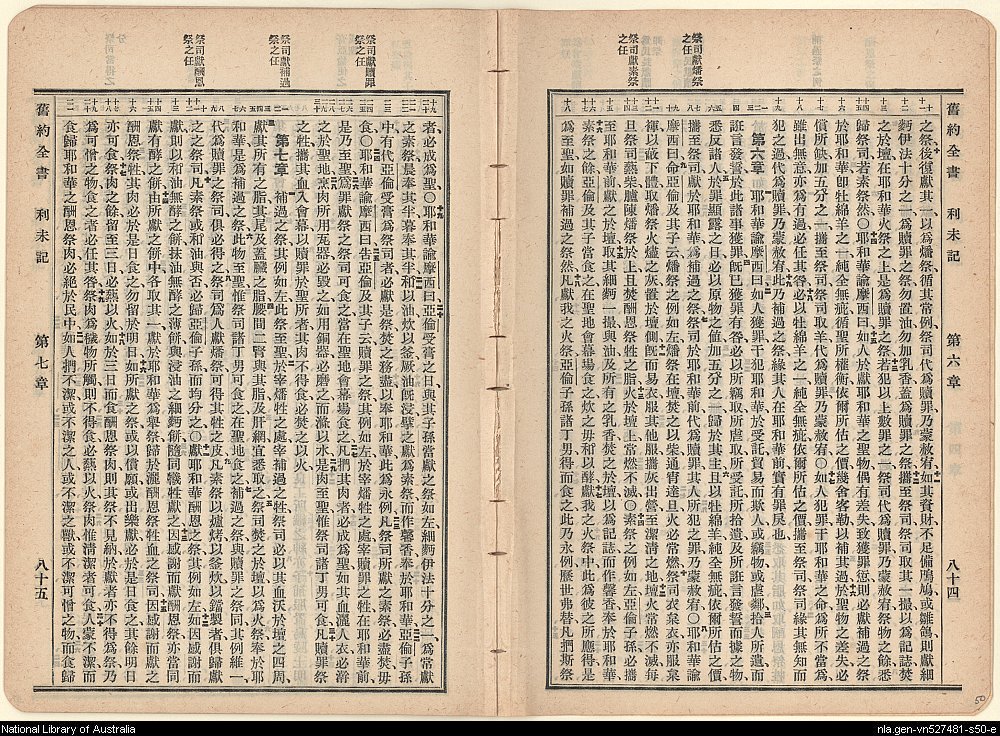 舊約全書 利未記 第六章 八十四
祭司獻燔祭之任
祭司獻素祭之任
之祭後復獻其一以爲燔祭循其常例祭司代爲贖罪乃蒙赦宥如其貲財不足備鳲鳩或雛鴿則獻細
麪伊法十分之一爲贖罪之祭勿置油勿加乳香蓋爲贖罪之祭攜至祭司祭司取其一撮以爲記誌焚
之於壇在耶和華火祭之上是爲贖罪之祭若犯以上數罪之一祭司代爲贖罪乃蒙赦宥祭物之餘悉
歸祭司若素祭然〇耶和華諭摩西曰如人於獻耶和華之聖物偶有差失致獲罪愆則必獻補過之祭
於耶和華卽牡綿羊之一純全無疵循聖所權衡依爾所估之價幾舍客勒以補其過於聖物之差失必
償所缺加五分之一攜至祭司祭司取羊代爲贖罪乃蒙赦宥〇如人犯罪干耶和華之命爲所不當爲
雖出無意亦爲有過必任其咎必以牡綿羊之一純全無疵依爾所估之價攜至祭司祭司緣其無知而
犯之過代爲贖罪乃蒙赦宥此乃補過之祭緣其人在耶和華前實有罪戾也
第六章 耶和華諭摩西曰如人獲罪干犯耶和華於受託貿易而欺人或竊物或虐鄰拾人所遺而
誑言發誓於此諸事獲罪旣已獲罪有咎必以所竊取所虐取所受託所拾遺及所誑言發誓而據之物
悉反諸人於罪顯露之日必以原物之値加五分之一歸於其主且以牡綿羊純全無疵依爾所估之價
攜至祭司獻於耶和華爲補過之祭祭司於耶和華前代爲贖罪其人所犯之罪乃蒙赦宥〇耶和華諭
摩西曰命亞倫及其子云燔祭之例如左燔祭在壇焚之以柴通宵達旦火必常燃祭司衣枲衣亦服枲
褌以蔽下體取燔祭火燼之灰置於壇側旣而易衣服其他服攜灰出營至潔淸之地壇火常燃不滅每
旦祭司爇柴臚陳燔祭於上且焚酬恩祭牲之脂火於壇上常燃不滅〇素祭之例如左亞倫子孫必獻
至耶和華前獻之於壇取其細麪一撮與油及所有之乳香焚之於壇以爲記誌而作馨香奉於耶和華
素祭之餘亞倫及其子當食之在聖地會幕場食之炊之毋和以酵獻我之火祭中此爲彼之所應得是
爲至聖如贖罪補過之祭然凡獻我之火祭亞倫子孫諸丁男得而食之此乃永例歷世弗替凡捫斯祭
舊約全書 利未記 第七章 八十五
祭司獻贖罪祭之任
祭司獻補過祭之任
祭司獻酬恩祭之任
者必成爲聖〇耶和華諭摩西曰亞倫受膏之日與其子孫當獻之祭如左細麪伊法十分之一爲常獻
之素祭晨奉其半暮奉其半和以油炊以釜厥油旣浸擘之獻爲素祭而作馨香奉於耶和華亞倫子孫
中有代亞倫受膏爲祭司者必獻是祭焚之務盡以奉耶和華此爲永例凡祭司所獻之素祭必盡焚毋
食〇耶和華諭摩西曰告亞倫及其子云贖罪之祭其例如左於宰燔祭牲之處宰贖罪之牲在耶和華前
是乃至聖爲罪獻祭之祭司可食之當在聖地會幕場食之凡捫其肉者必成爲聖如其血灑人衣必澣
之於聖地烹肉所用瓦器必毀之如用銅器必磨之而滌以水是肉至聖惟祭司諸丁男可食凡贖罪祭
之牲攜其血入會幕以贖罪於聖所者其肉不得食必焚之以火
第七章 補過之祭其例如左此祭至聖於宰燔牲之處宰補過之牲祭司必以其血沃於壇之四周
獻其所有之脂其尾及蓋臟之脂腰間二腎與其脂及肝網宜悉取之祭司焚之於壇以爲火祭奉於耶
和華是爲補過之祭此物至聖惟祭司諸丁男可食之在聖地食之補過之祭與贖罪之祭同其例維一
代爲贖罪之祭司俱必得之祭司爲人獻燔祭可得其牲之皮凡素祭以爐烤以釜炊以鐺製者俱歸獻
之之祭司凡素祭或和油與否必歸亞倫子孫而均分之〇獻耶和華酬恩之祭其例如左如因感謝而
獻則以和油無酵之餅抹油無酵之薄餅與浸油之細麪餅隨同犧牲獻之因感謝而獻酬恩祭亦當同
獻有酵之餅由所獻之餅中各取其一獻於耶和華爲舉祭歸於灑酬恩祭牲血之祭司因感謝而獻之
酬恩祭牲其肉必於是日食之勿留於明日如所獻之祭或以償願或出樂獻必於是日食之其餘明日
亦可食祭肉之餘留至三日必爇以火如於三日而食酬恩祭肉則其祭不見納於獻者亦不得爲祭乃
爲可憎之物食之者必任其咎祭肉爲穢物所觸則不得食必爇以火祭肉惟淸潔者可食人蒙不潔而
食歸耶和華之酬恩祭肉必絕於民中如人捫不潔或不潔之人或不潔之獸或不潔可憎之物而食歸
50
National Library of Australia
nla.gen-vn527481-s50-e